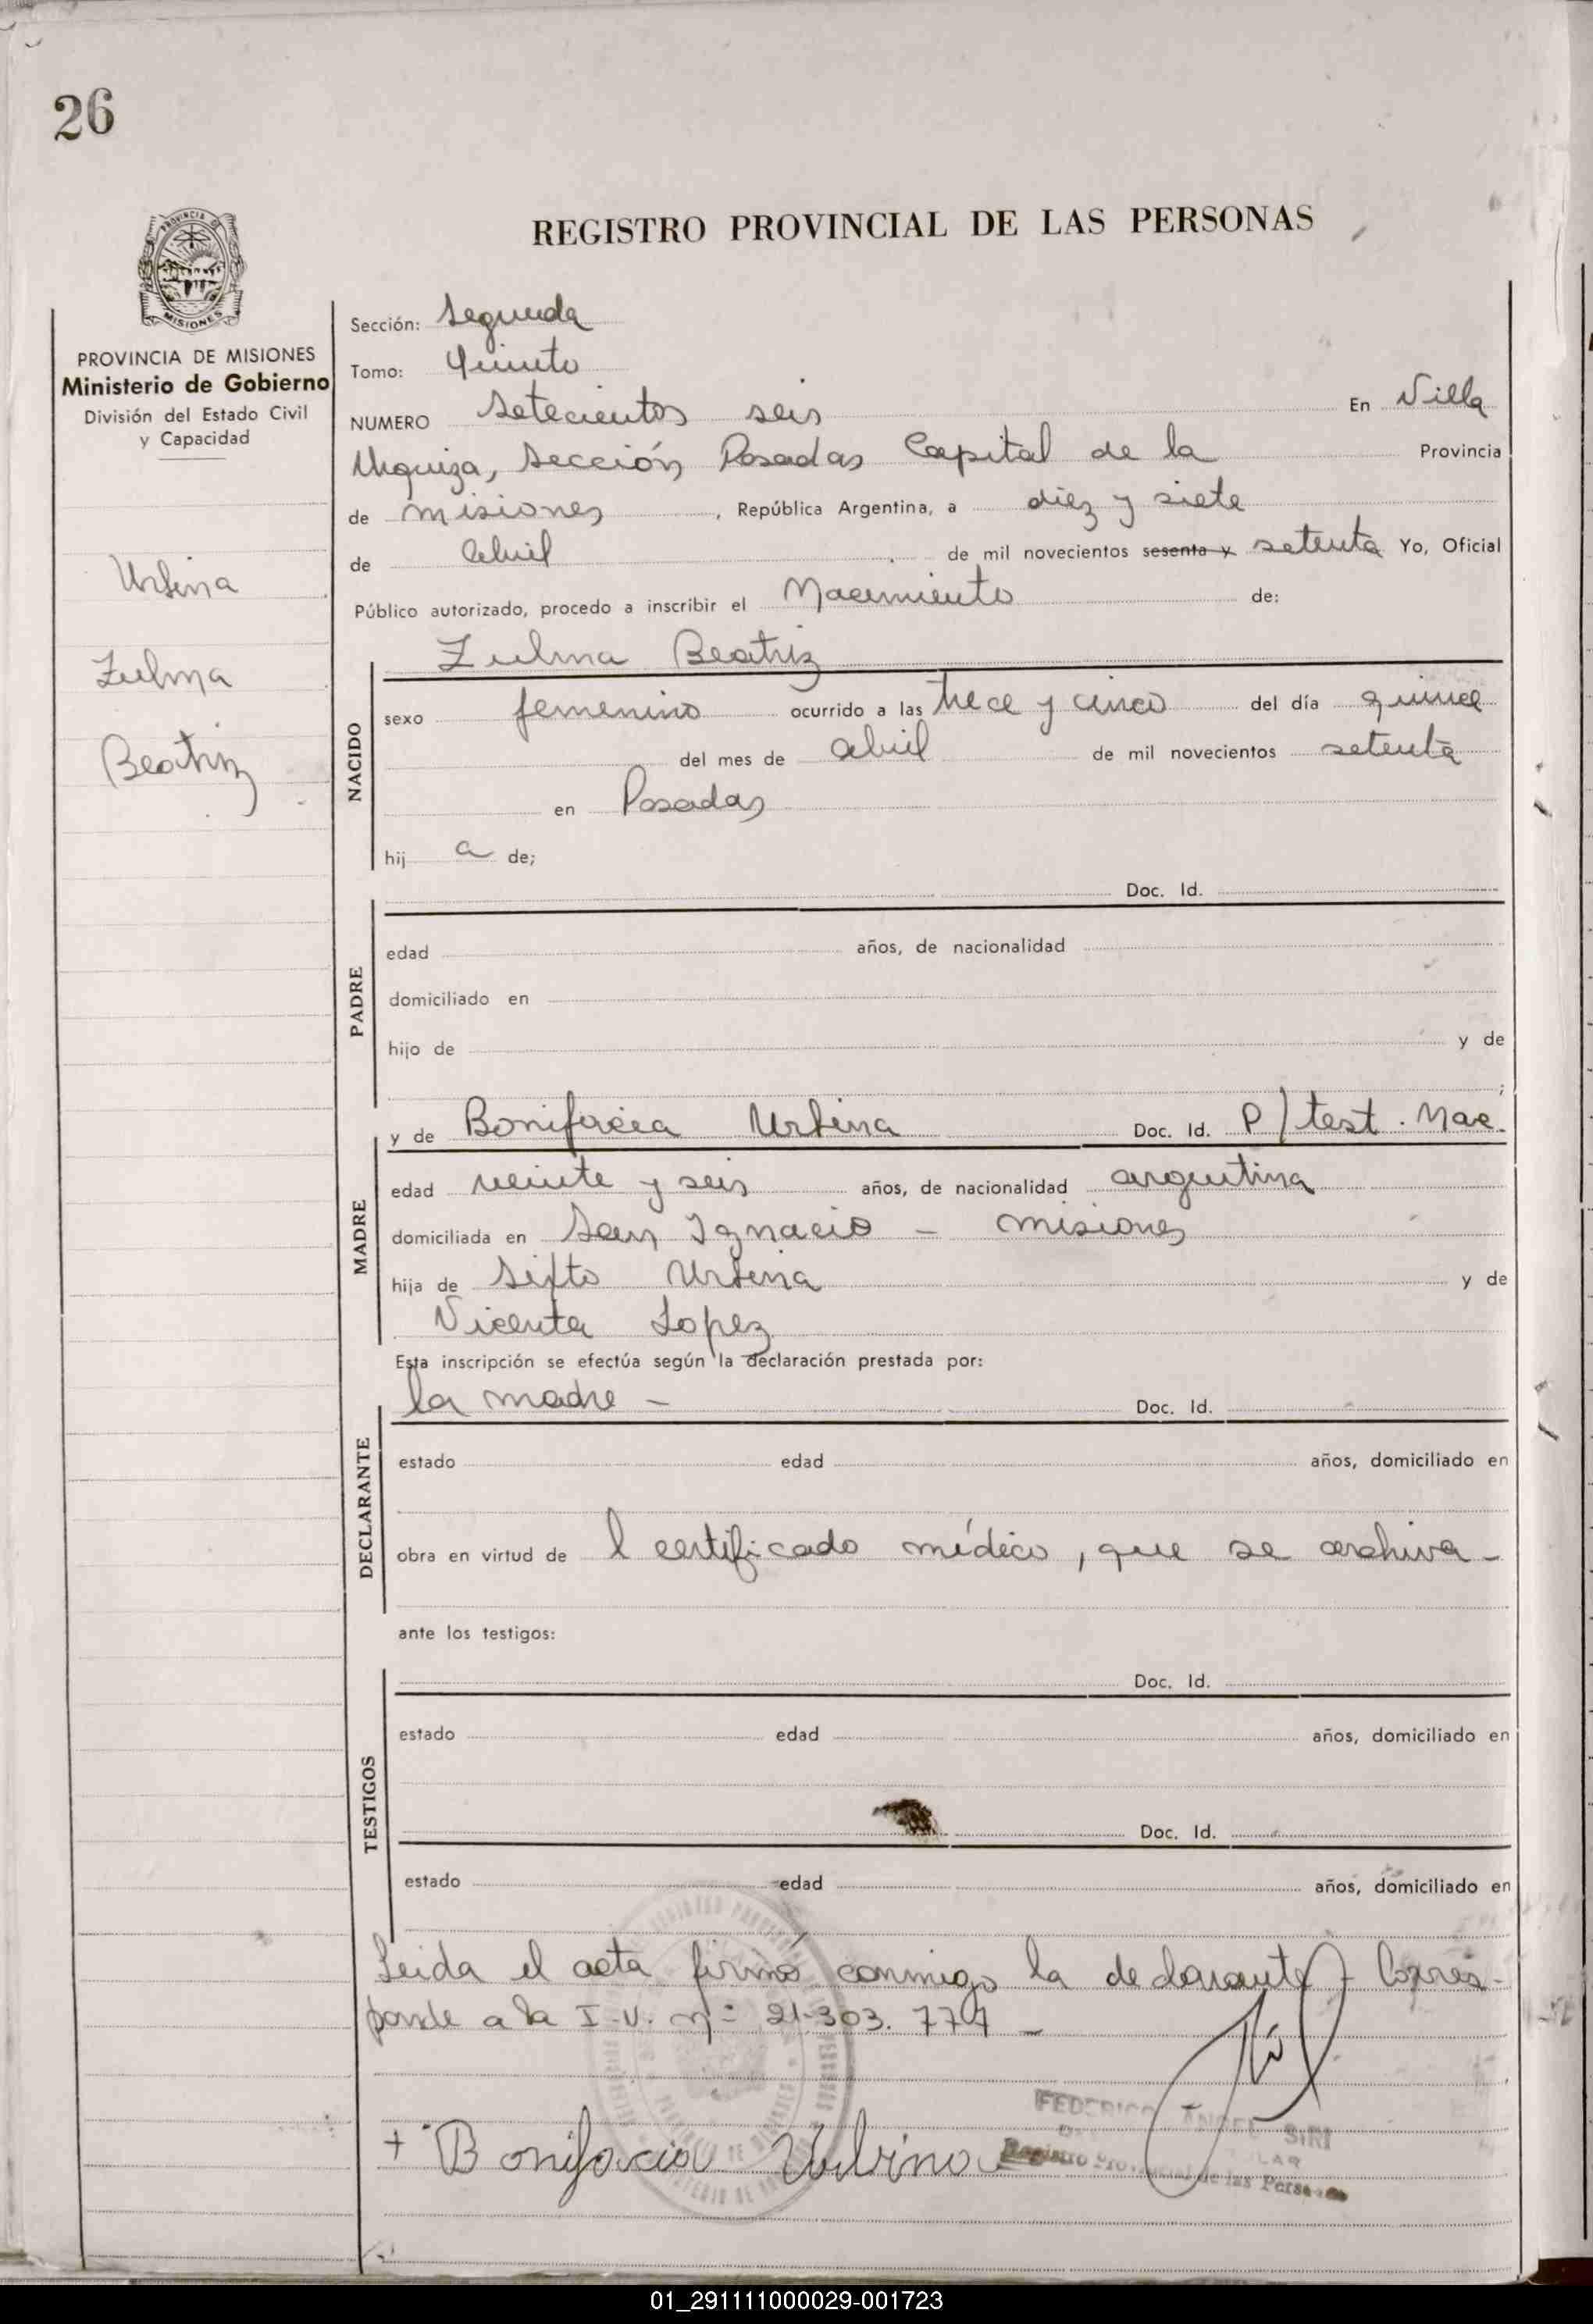 26
REGISTRO PROVINCIAL DE LAS PERSONAS
PROVINCIA DE
MISIONES
PROVINCIA DE MISIONES
Ministerio de Gobierno
División del Estado Civil
y Capacidad
Urbina
Zulma
Beatriz
Sección: Segunda
Tomo: Quinto
NUMERO Setecientos seis En Villa
Urquiza, Sección Posadas Capital de la Provincia
de Misiones, República Argentina, a diez y siete
de abril de mil novecientos sesenta y setenta Yo, Oficial
Público autorizado, procedo a inscribir el Nacimiento de:
Zulma Beatriz
NACIDO
sexo femenino ocurrido a las trece y cinco del día quince
del mes de abril de mil novecientos setenta
en Posadas
hij a de;
Doc. Id.
PADRE
edad años, de nacionalidad
domiciliado en
hijo de y de
;
y de Bonifacia Urbina Doc. Id. P/test. Nac.
MADRE
edad veinte y seis años, de nacionalidad argentina
domiciliada en San Ignacio - Misiones
hija de Sixto Urbina y de
Vicenta Lopez
Esta inscripción se efectúa según la declaración prestada por:
la madre - Doc. Id.
DECLARANTE
estado edad años, domiciliado en
obra en virtud de l certificado médico, que se archiva -
ante los testigos:
Doc. Id.
TESTIGOS
estado edad años, domiciliado en
Doc. Id.
estado edad años, domiciliado en
Leida el acta firmó conmigo la declarante - Corres-
ponde a la I-V. nº 21.303.777 -
FEDERICO ANGEL SIRI
Registro Provincial de las Personas
+ Bonifacia Urbina
01_291111000029-001723